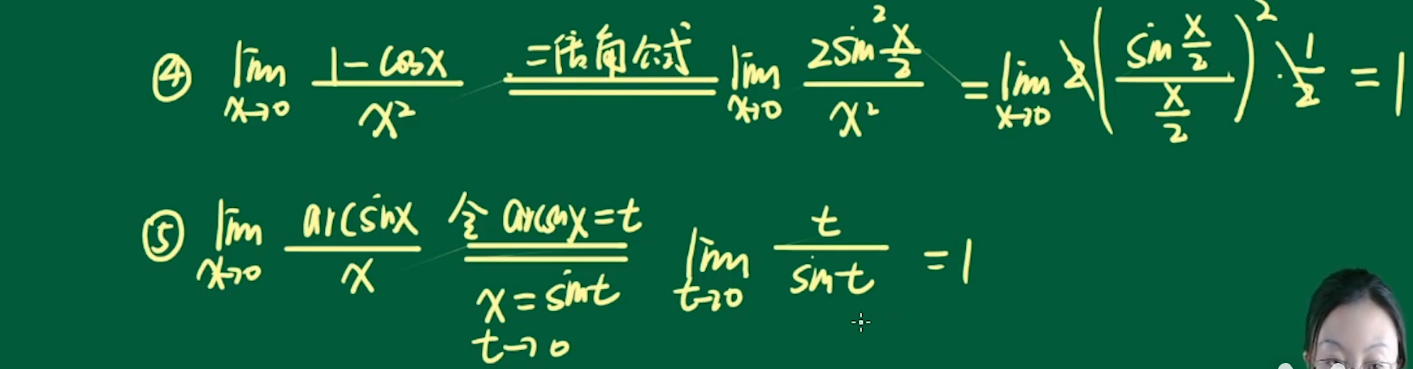 ④ lim x→0 (1-cosx)/x² =二倍角公式= lim x→0 (2sin² x/2)/x² = lim x→0 2((sin x/2)/(x/2))² · 1/2 = 1
⑤ lim x→0 arcsinx/x =令 arcsinx=t, x=sint, t→0= lim t→0 t/sint = 1